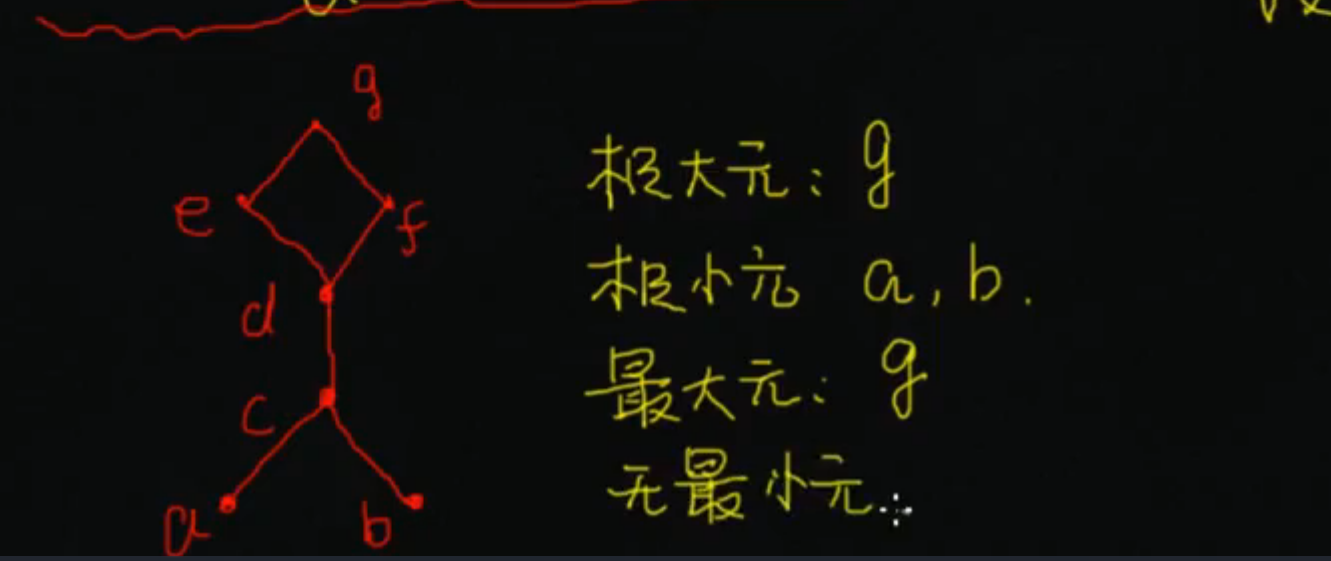 g
e
f
d
c
a
b
极大元：g
极小元 a, b.
最大元：g
无最小元.